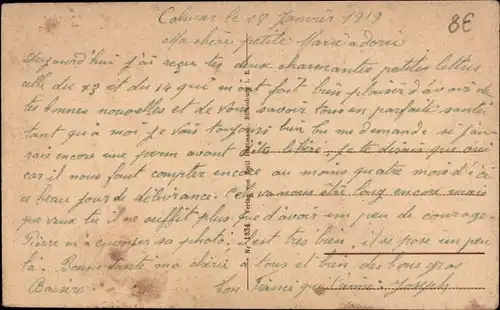 Colmar le 18 Janvier 1919
8€
Ma chère petite Marie adorée
Aujourd'hui j'ai reçu tes deux charmantes petites lettres
celle du 13 et du 14 qui m'ont fait bien plaisir d'avoir de
tes bonnes nouvelles et de vous savoir tous en parfaite santé
tant qu'à moi je vais toujours bien tu me demande si j'au
rais encore une perm avant d'être libéré. Je te dirais que oui
car il nous faut compter encore au moins quatre mois d'ici
ce beau jour de délivrance. Cela va nous être long encore mais
que veux tu il ne suffit plus que d'avoir un peu de courage
Pierre m'a envoyer sa photo. C'est très bien, il se pose un peu
là. Bonne santé ma chérie à tous et bien des bons gros
Baisers. Ton Fiancé que t'aime Joseph
Nr. 1634 Verlag von